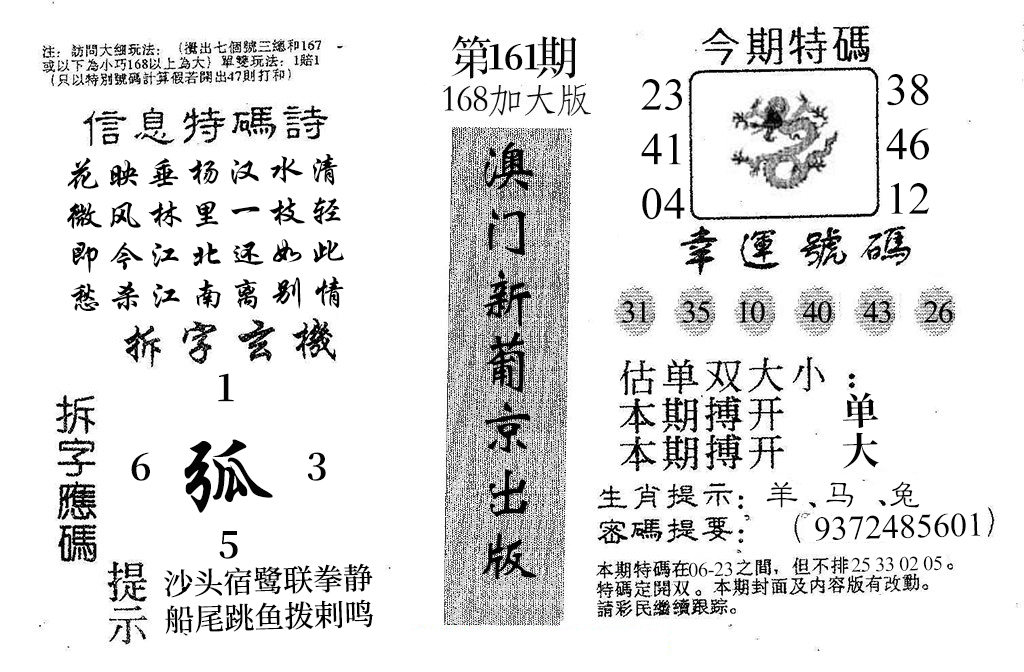 注：訪問大細玩法：（攪出七個號三總和167
或以下為小巧168以上為大）單雙玩法：1賠1
（只以特別號碼計算假若開出47則打和）
信息特碼詩
花映垂杨汉水清
微风林里一枝轻
即今江北还如此
愁杀江南离别情
拆字玄機
拆字應碼
1
6 弧 3
5
提示
沙头宿鹭联拳静
船尾跳鱼拨剌鸣
第161期
168加大版
澳门新葡京出版
今期特碼
23 38
41 46
04 12
幸運號碼
31 35 10 40 43 26
估单双大小：
本期搏开 单
本期搏开 大
生肖提示：羊、马、兔
密碼提要：（9372485601）
本期特碼在06-23之間，但不排25 33 02 05。
特碼定開双。本期封面及内容版有改動。
請彩民繼續跟踪。